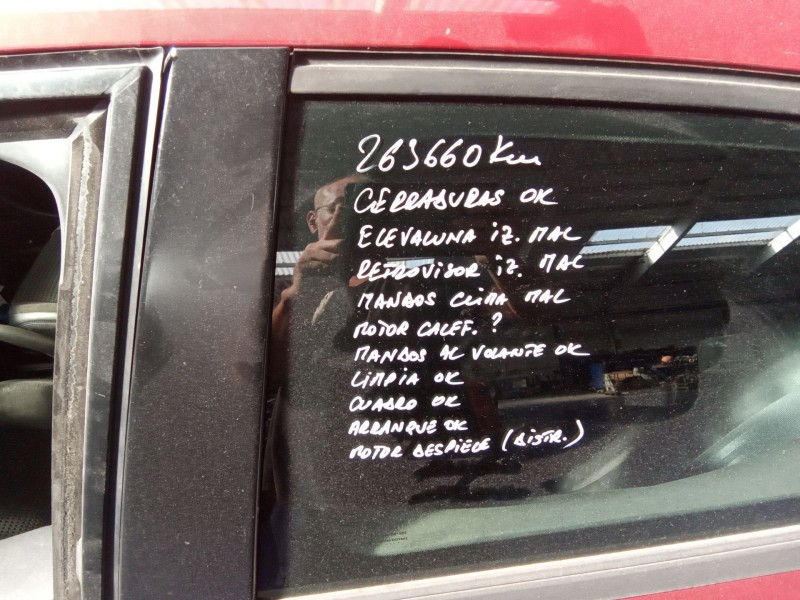 263660 Km
CERRADURAS OK
ELEVALUNA iZ. MAL
RETROVISOR iZ. MAL
MANDOS CLIMA MAL
MOTOR CALEF. ?
MANDOS AL VOLANTE OK
LIMPIA OK
CUADRO OK
ARRANQUE OK
MOTOR DESPIECE (DISTR.)